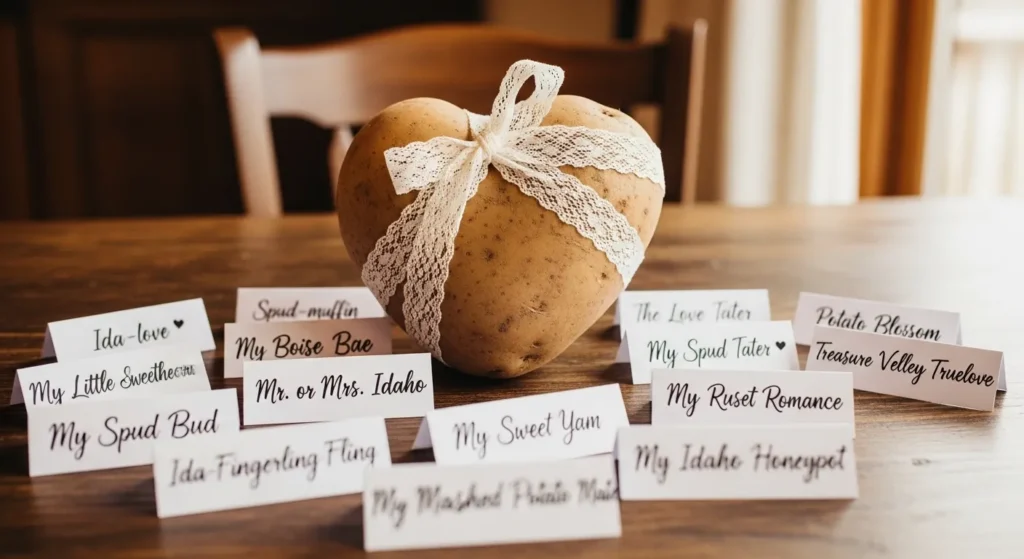 Spud-muffin
The Love Tater
Potato Blossom
Ida-love ♥
My Boise Bae
My Spud Tater ♥
Treasure Velley Truelove
My Little
Mr. or Mrs. Idaho
My Ruset Romance
My Spud Bud
My Sweet Yam
Ida-Fingerling Fling
My Idaho Honeypot
My Mashed